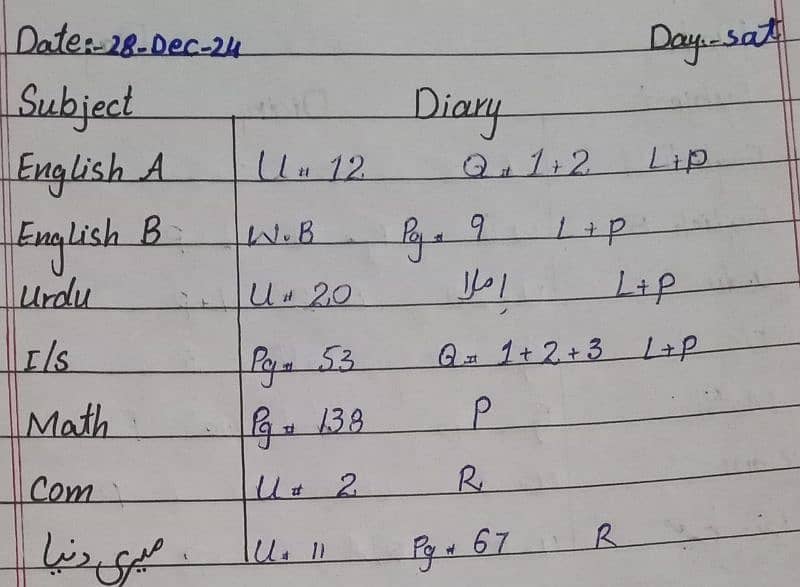 Date:-28-Dec-24 Day:-sat
Subject Diary
English A U # 12 Q # 1+2 L+P
English B W.B Pg # 9 L+P
Urdu U # 20 إملا L+P
I/s Pg # 53 Q # 1+2+3 L+P
Math Pg # 138 P
Com U # 2 R
میری دنیا U # 11 Pg # 67 R